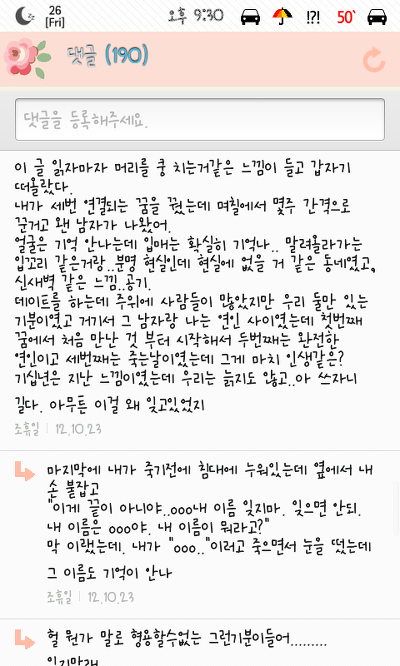 26
[Fri]
오후 9:30
!?!
50`
댓글 (190)
댓글을 등록해주세요.
이 글 읽자마자 머리를 쿵 치는거같은 느낌이 들고 갑자기
떠올랐다.
내가 세번 연결되는 꿈을 꿨는데 며칠에서 몇주 간격으로
꾼거고 왠 남자가 나왔어.
얼굴은 기억 안나는데 입매는 확실히 기억나.. 말려올라가는
입꼬리 같은거랑..분명 현실인데 현실에 없을 거 같은 동네였고,
신새벽 같은 느낌..공기.
데이트를 하는데 주위에 사람들이 많았지만 우리 둘만 있는
기분이였고 거기서 그 남자랑 나는 연인 사이였는데 첫번째
꿈에서 처음 만난 것 부터 시작해서 두번째는 완전한
연인이고 세번째는 죽는날이였는데 그게 마치 인생같은?
기십년은 지난 느낌이였는데 우리는 늙지도 않고..아 쓰자니
길다. 아무튼 이걸 왜 잊고있었지
조휴일 | 12.10.23
마지막에 내가 죽기전에 침대에 누워있는데 옆에서 내
손 붙잡고
"이게 끝이 아니야..ooo내 이름 잊지마. 잊으면 안되.
내 이름은 ooo야. 내 이름이 뭐라고?"
막 이랬는데. 내가 "ooo.."이러고 죽으면서 눈을 떴는데
그 이름도 기억이 안나
조휴일 | 12.10.23
헐 뭔가 말로 형용할수없는 그런기분이들어.........